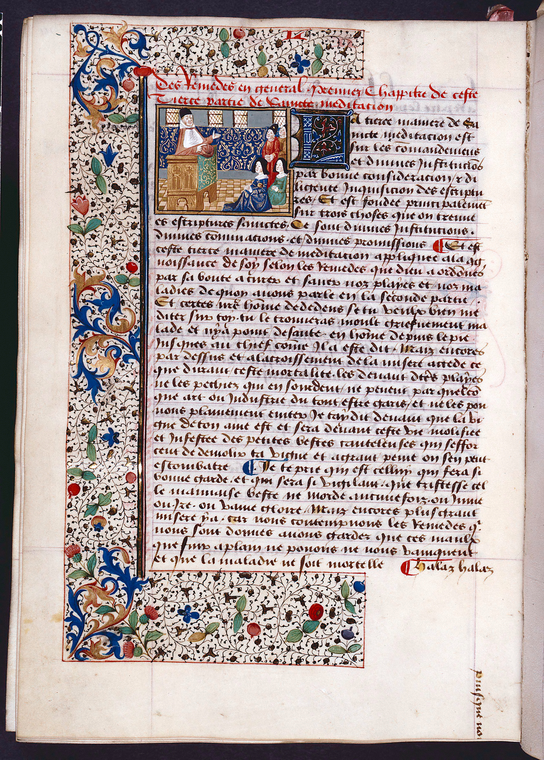 Des Remedes en general. Premier Chappitre de ceste
Tierce partie de Saincte meditation
La tierce maniere de Sa
incte meditation est
sur les commandemens
et diuines Institutions
par bonne consideration et di
ligente Inquisition des escriptu
res. Et est fondee principaument
sur trois choses que on treuue
es escriptures sainctes. Ce sont diuines Institutions.
diuines comminations. et diuines promissions Et est
ceste tierce maniere de meditation appliquee a la cog
noissance de soy selon les Remedes que dieu a ordonnes
par sa bonte a curer et saner noz playes et noz ma
ladies de quoy auons parle en la seconde partie
Et certes homme de dedens se tu veulx bien me
diter sur toy tu te trouueras moult griefuement ma
lade et ny a point de sante en home depuis le pie
Jusques au chief come Ja a este dit. Mais encores
par dessus et a lacroissement de la misere accede ce
que durant ceste mortalite les deuant dites playes
ne les pechiez qui en sourdent ne peuent par quelco
que art ou Industrie du tout estre garis. et ne les pou
uons plainement euiter Je toy dit deuant que la vi
gne de ton ame est et sera durant ceste vie molestee
et Infestee des petites bestes cauteleuses qui seffor
cent de demolir ta vigne et a grant peine on sen peut
Je te pry qui est cellui qui fera si
bonne garde. et qui sera si vigilant que tristesse cel
le mauuaise beste ne morde aucunefoiz. ou Ennuy
ou Ire. ou vaine gloire. Mais encores plus grant
misere y a. car nous contempnons les Remedes qui
nous sont donnes auons garder que ces maulx
que a plain ne pouons ne nous vainquent
et que la maladie ne soit mortelle Halaz halaz